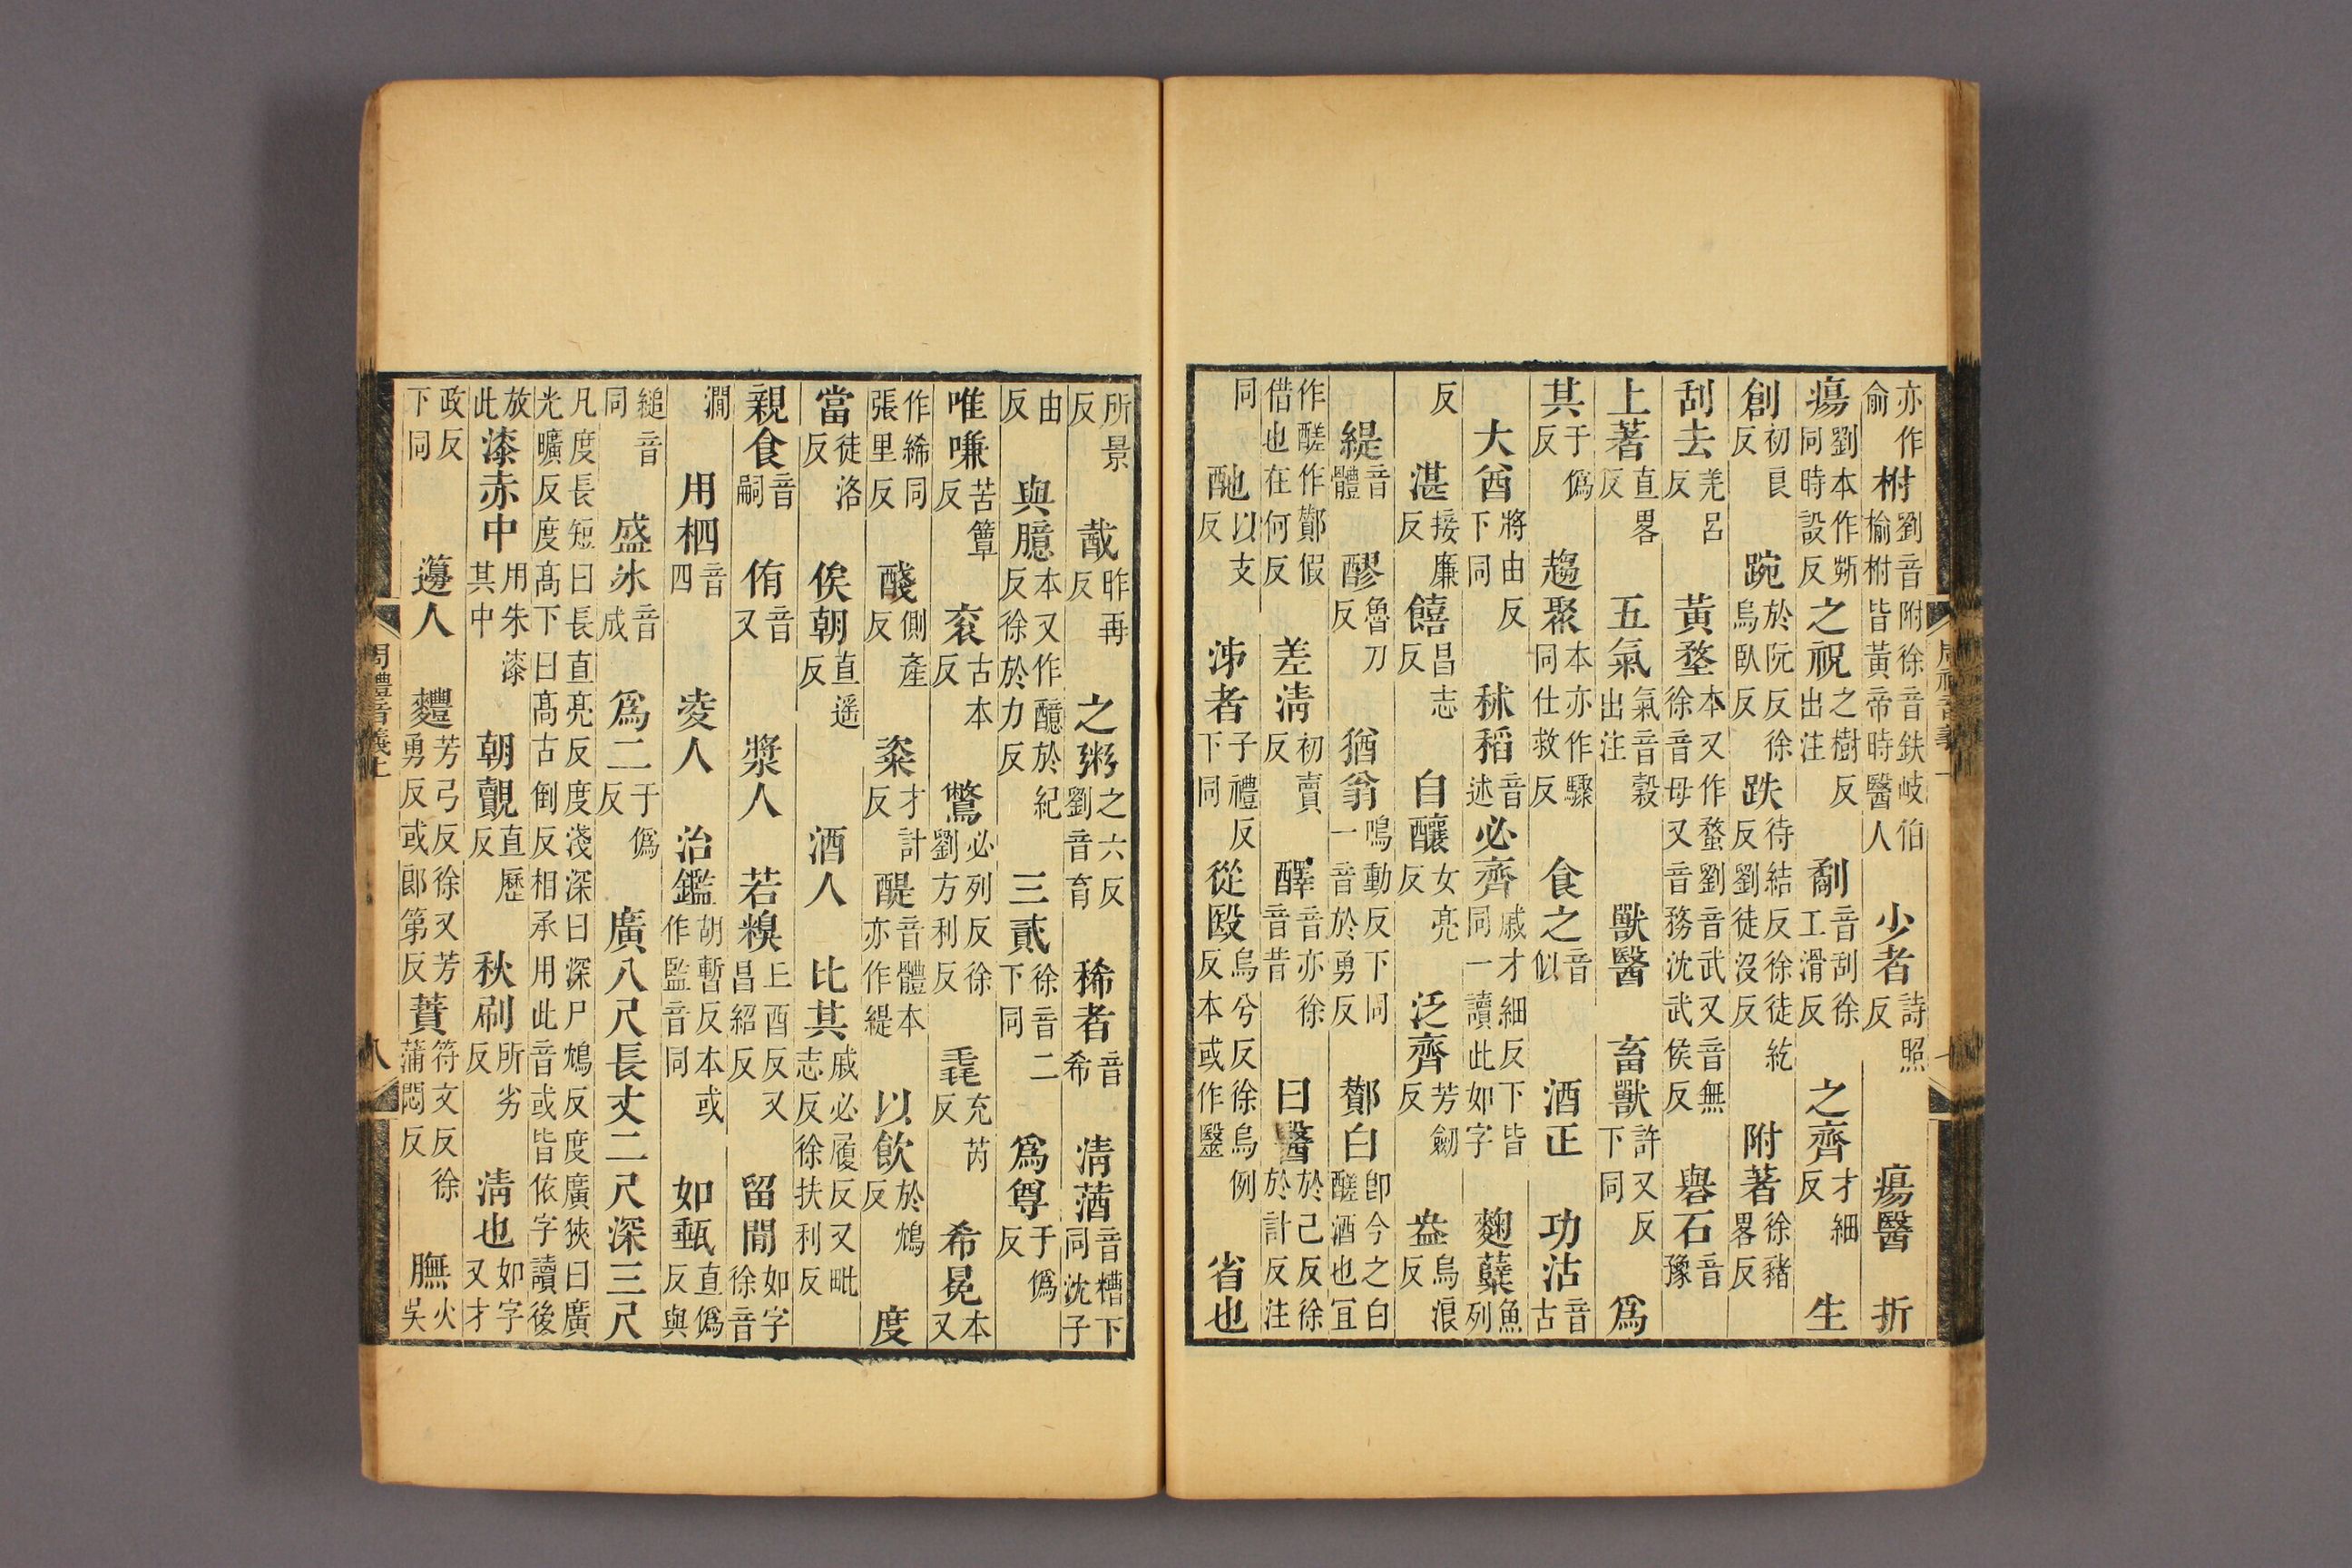 亦作俞柎劉音附徐音鈇岐伯榆柎皆黃帝時醫人少者詩照反瘍醫折
瘍劉本作斲同時設反之祝之樹反出注劀音刮徐工滑反之齊才細反生
創初良反踠於阮反徐烏臥反跌待結反徐徒紇反劉徒沒反附著徐豬畧反
刮去羌呂反黃堥本又作蝥劉音武又音無徐音母又音務沈武侯反礜石音豫
上著直畧反五氣氣音穀出注獸醫畜獸許又反下同爲
其于僞反趨聚本亦作驟同仕救反食之音似酒正功沽音古
大酋將由反下同秫稻音述必齊戚才細反下皆同一讀此如字麴糵魚列
反湛接廉反饎昌志反自釀女亮反泛齊芳劒反盎烏浪反
緹音體醪魯刀反猶翁鳴動反下同一音於勇反酇白卽今之白醝酒也冝
作醝作酇假借也在何反差淸初賣反醳音亦徐音昔曰醫於己反徐於計反注
同酏以支反泲者子禮反下同從殹烏兮反徐烏例反本或作毉省也
所景反酨昨再反之粥之六反劉音育稀者音希淸䤖音糟下同沈子
由反與臆本又作醷於紀反徐於力反三貳徐音二下同爲尊于僞反
唯嗛苦簟反袞古本反鷩必列反徐劉方利反毳充芮反希冕本又
作絺同張里反醆側產反粢才計反醍音體本亦作緹以飮於鴆反度
當徒洛反俟朝直遥反酒人比其戚必履反又毗志反徐扶利反
親食音嗣侑音又漿人若糗上酉反又昌紹反留閒如字徐音
澗用柶音四凌人治鑑胡暫反本或作監音同如甀直僞反與
縋音同盛冰音成爲二于僞反廣八尺長丈二尺深三尺
凡度長短曰長直亮反度淺深曰深尸鴆反度廣狹曰廣光曠反度高下曰高古倒反相承用此音或皆依字讀後
放此漆赤中用朱漆其中朝覿直歷反秋刷所劣反淸也如字又才
政反下同籩人麷芳弓反徐又芳勇反或郎第反蕡符文反徐蒲悶反膴火吳
周禮音義上
八